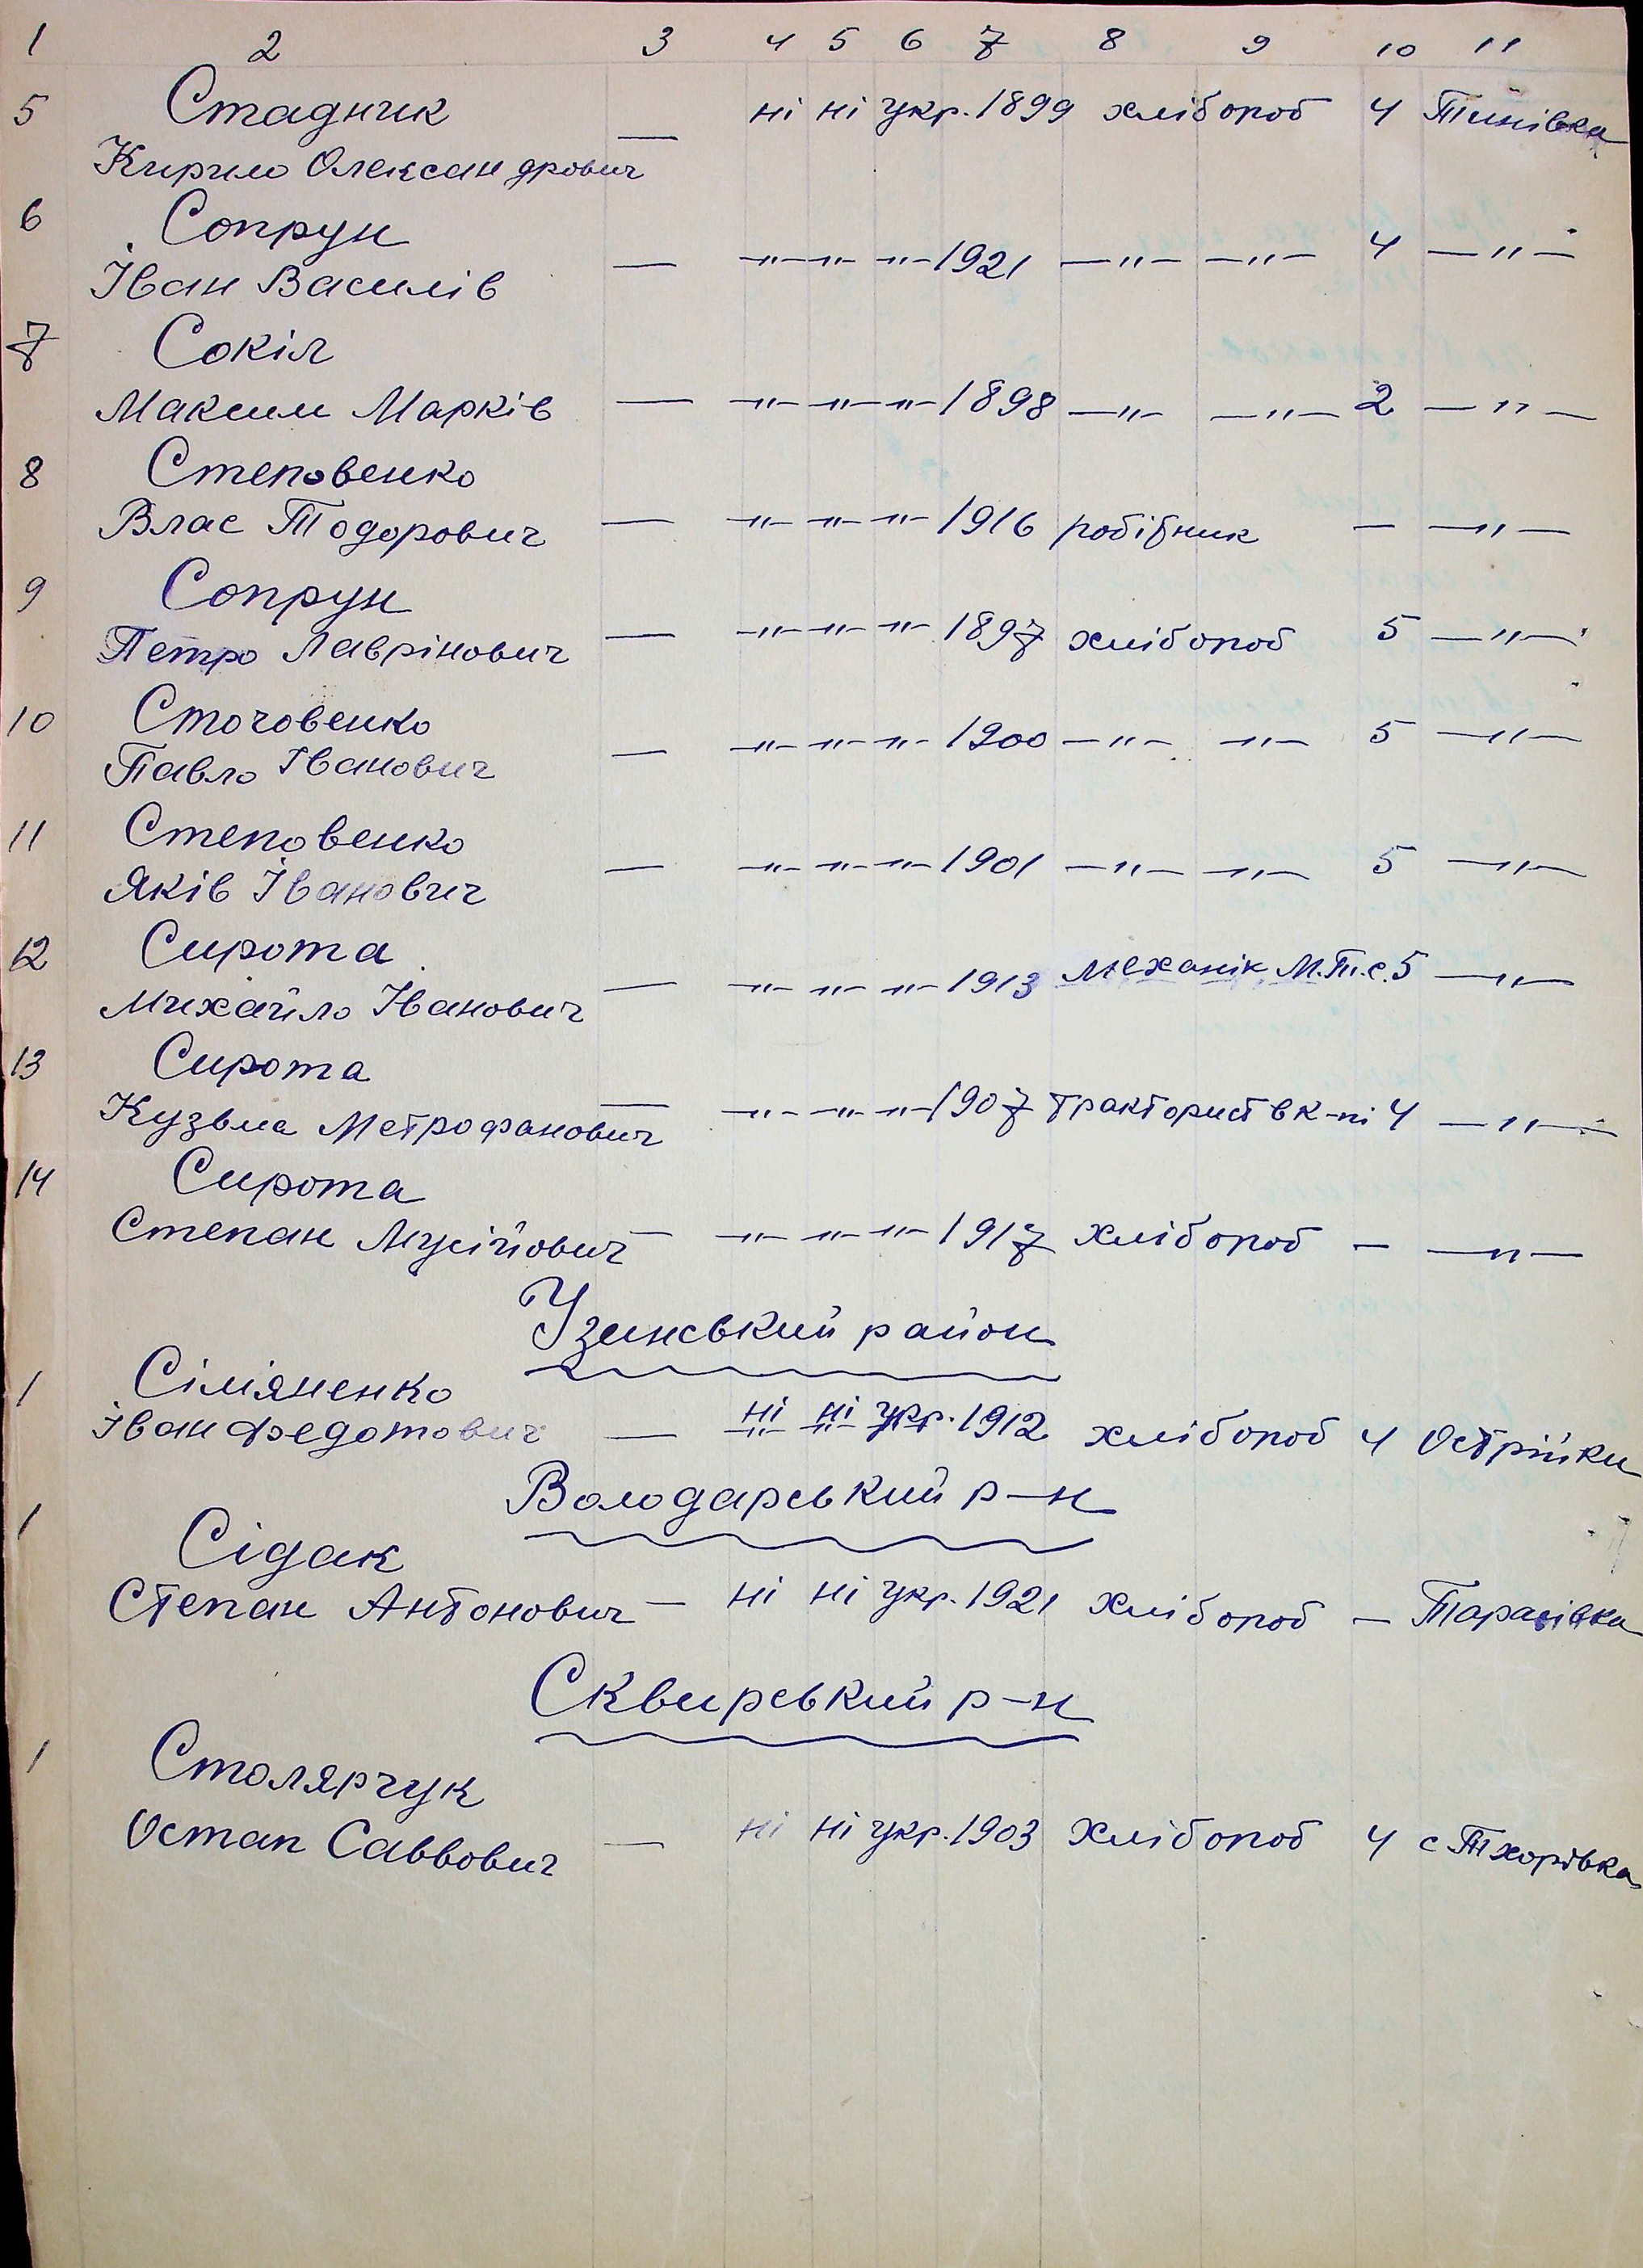 1 2 3 4 5 6 7 8 9 10 11
5 Стадник — ні ні укр. 1899 хлібороб 4 Тинівка
Кирило Олександрович
6 Сопрун
Іван Василів — —"— —"— —"— 1921 —"— —"— 4 —"—
7 Сокіл
Максим Марків — —"— —"— —"— 1898 —"— —"— 2 —"—
8 Степовенко
Влас Тодорович — —"— —"— —"— 1916 робітник — —"—
9 Сопрун
Петро Лаврінович — —"— —"— —"— 1897 хлібороб 5 —"—
10 Стоговенко
Павло Іванович — —"— —"— —"— 1900 —"— —"— 5 —"—
11 Степовенко
Яків Іванович — —"— —"— —"— 1901 —"— —"— 5 —"—
12 Сирота
Михайло Іванович — —"— —"— —"— 1913 Механік М.Т.с. 5 —"—
13 Сирота
Кузьма Метрофанович — —"— —"— —"— 1907 тракторист в к-пі 4 —"—
14 Сирота
Степан Мусійович — —"— —"— —"— 1917 хлібороб — —"—
Узинський район
1 Сіміяненко
Іван Федотович — ні ні укр. 1912 хлібороб 4 Острійки
Володарський р-н
1 Сідак
Степан Антонович — ні ні укр. 1921 хлібороб — Тарасівка
Сквирський р-н
1 Столярчук
Остап Саввович — ні ні укр. 1903 хлібороб 4 с Тхорівка